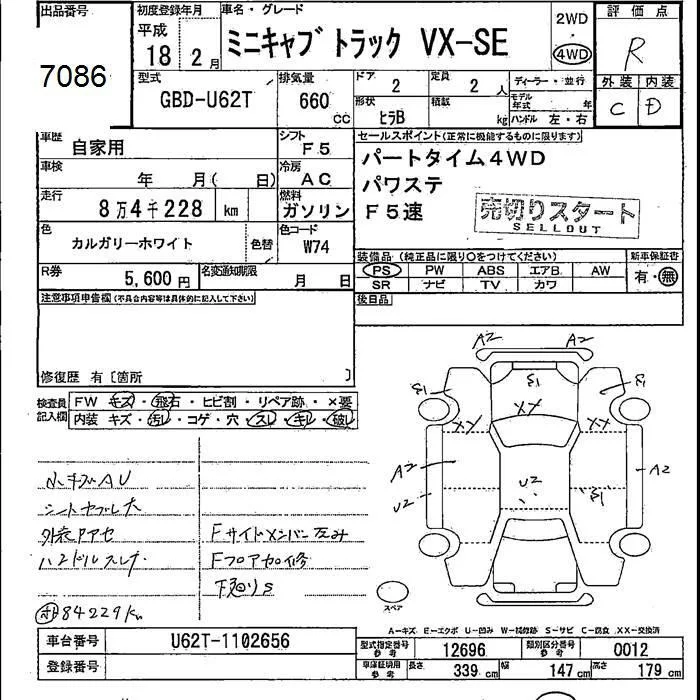 出品番号
7086
初度登録年月
平成
18 2月
車名・グレード
ミニキャブ トラック VX-SE
2WD
4WD
評価点
R
外装 内装
C D
型式
GBD-U62T
排気量
660 cc
ドア
2
定員
2 人
形状
ヒラB
積載
kg
ディーラー・並行
モデル年式 年
ハンドル 左・右
車歴
自家用
シフト
F5
車検
年 月( 日)
冷房
AC
走行
8万4千228 km
燃料
ガソリン
色
カルガリーホワイト
色替
色コード
W74
R券
5,600円
名変通知期限
月 日
セールスポイント(正常に機能するものに限ります)
パートタイム4WD
パワステ
F5速
売切りスタート
SELLOUT
装備品(純正品に限り○をつけてください)
新車保証書
PS PW ABS エアB AW
SR ナビ TV カワ
有・無
後日品
注意事項申告欄(不具合内容等は具体的に記入して下さい)
修復歴 有〔箇所 〕
検査員記入欄
FW キズ・飛石・ヒビ割・リペア跡・×要
内装 キズ・汚レ・コゲ・穴・スレ・キレ・破レ
小キズAU
シートヤブレ大
ハンドルスレ
Fサイドメンバー歪み
Fフロア加修
下廻りS
84229Km
A2 A2
S1 S1 S1
XX XX XX
A2 U2 U2 S1 A2
スペア
A-キズ E-エクボ U-凹み W-補修跡 S-サビ C-腐食 XX-交換済
車台番号
U62T-1102656
登録番号
型式指定番号 参考
12696
類別区分番号 参考
0012
車庫証明用 参考
長さ 339 cm 幅 147 cm 高さ 179 cm